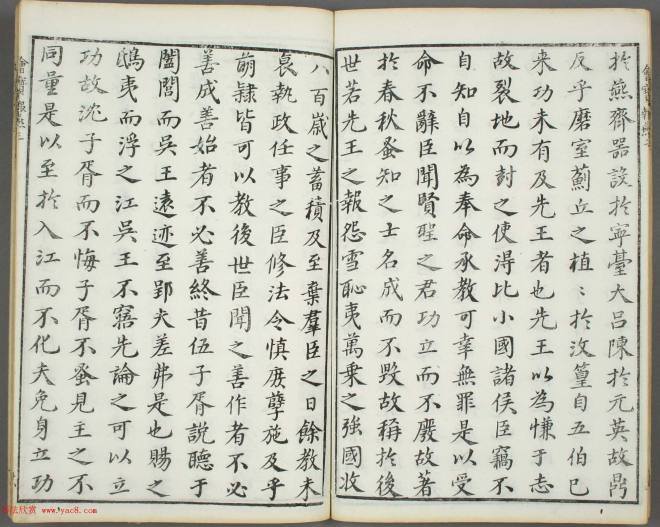 於燕齊器設於寧臺大呂陳於元英故鼎
反乎磨室薊丘之植〻於汶篁自五伯已
来功未有及先王者也先王以為慊于志
故裂地而封之使淂比小國諸侯臣竊不
自知自以為奉命承教可幸無罪是以受
命不辭臣聞賢聖之君功立而不廢故著
於春秋蚤知之士名成而不毀故稱於後
世若先王之報怨雪恥夷萬乗之強國收
八百歲之蓄積及至棄羣臣之日餘教未
衰執政任事之臣修法令慎庶孽施及乎
萌隸皆可以教後世臣聞之善作者不必
善成善始者不必善終昔伍子胥說聽于
闔閭而吳王遠迹至郢夫差弗是也賜之
鴟夷而浮之江吳王不寤先論之可以立
功故沈子胥而不悔子胥不蚤見主之不
同量是以至於入江而不化夫免身立功
www.yac8.com